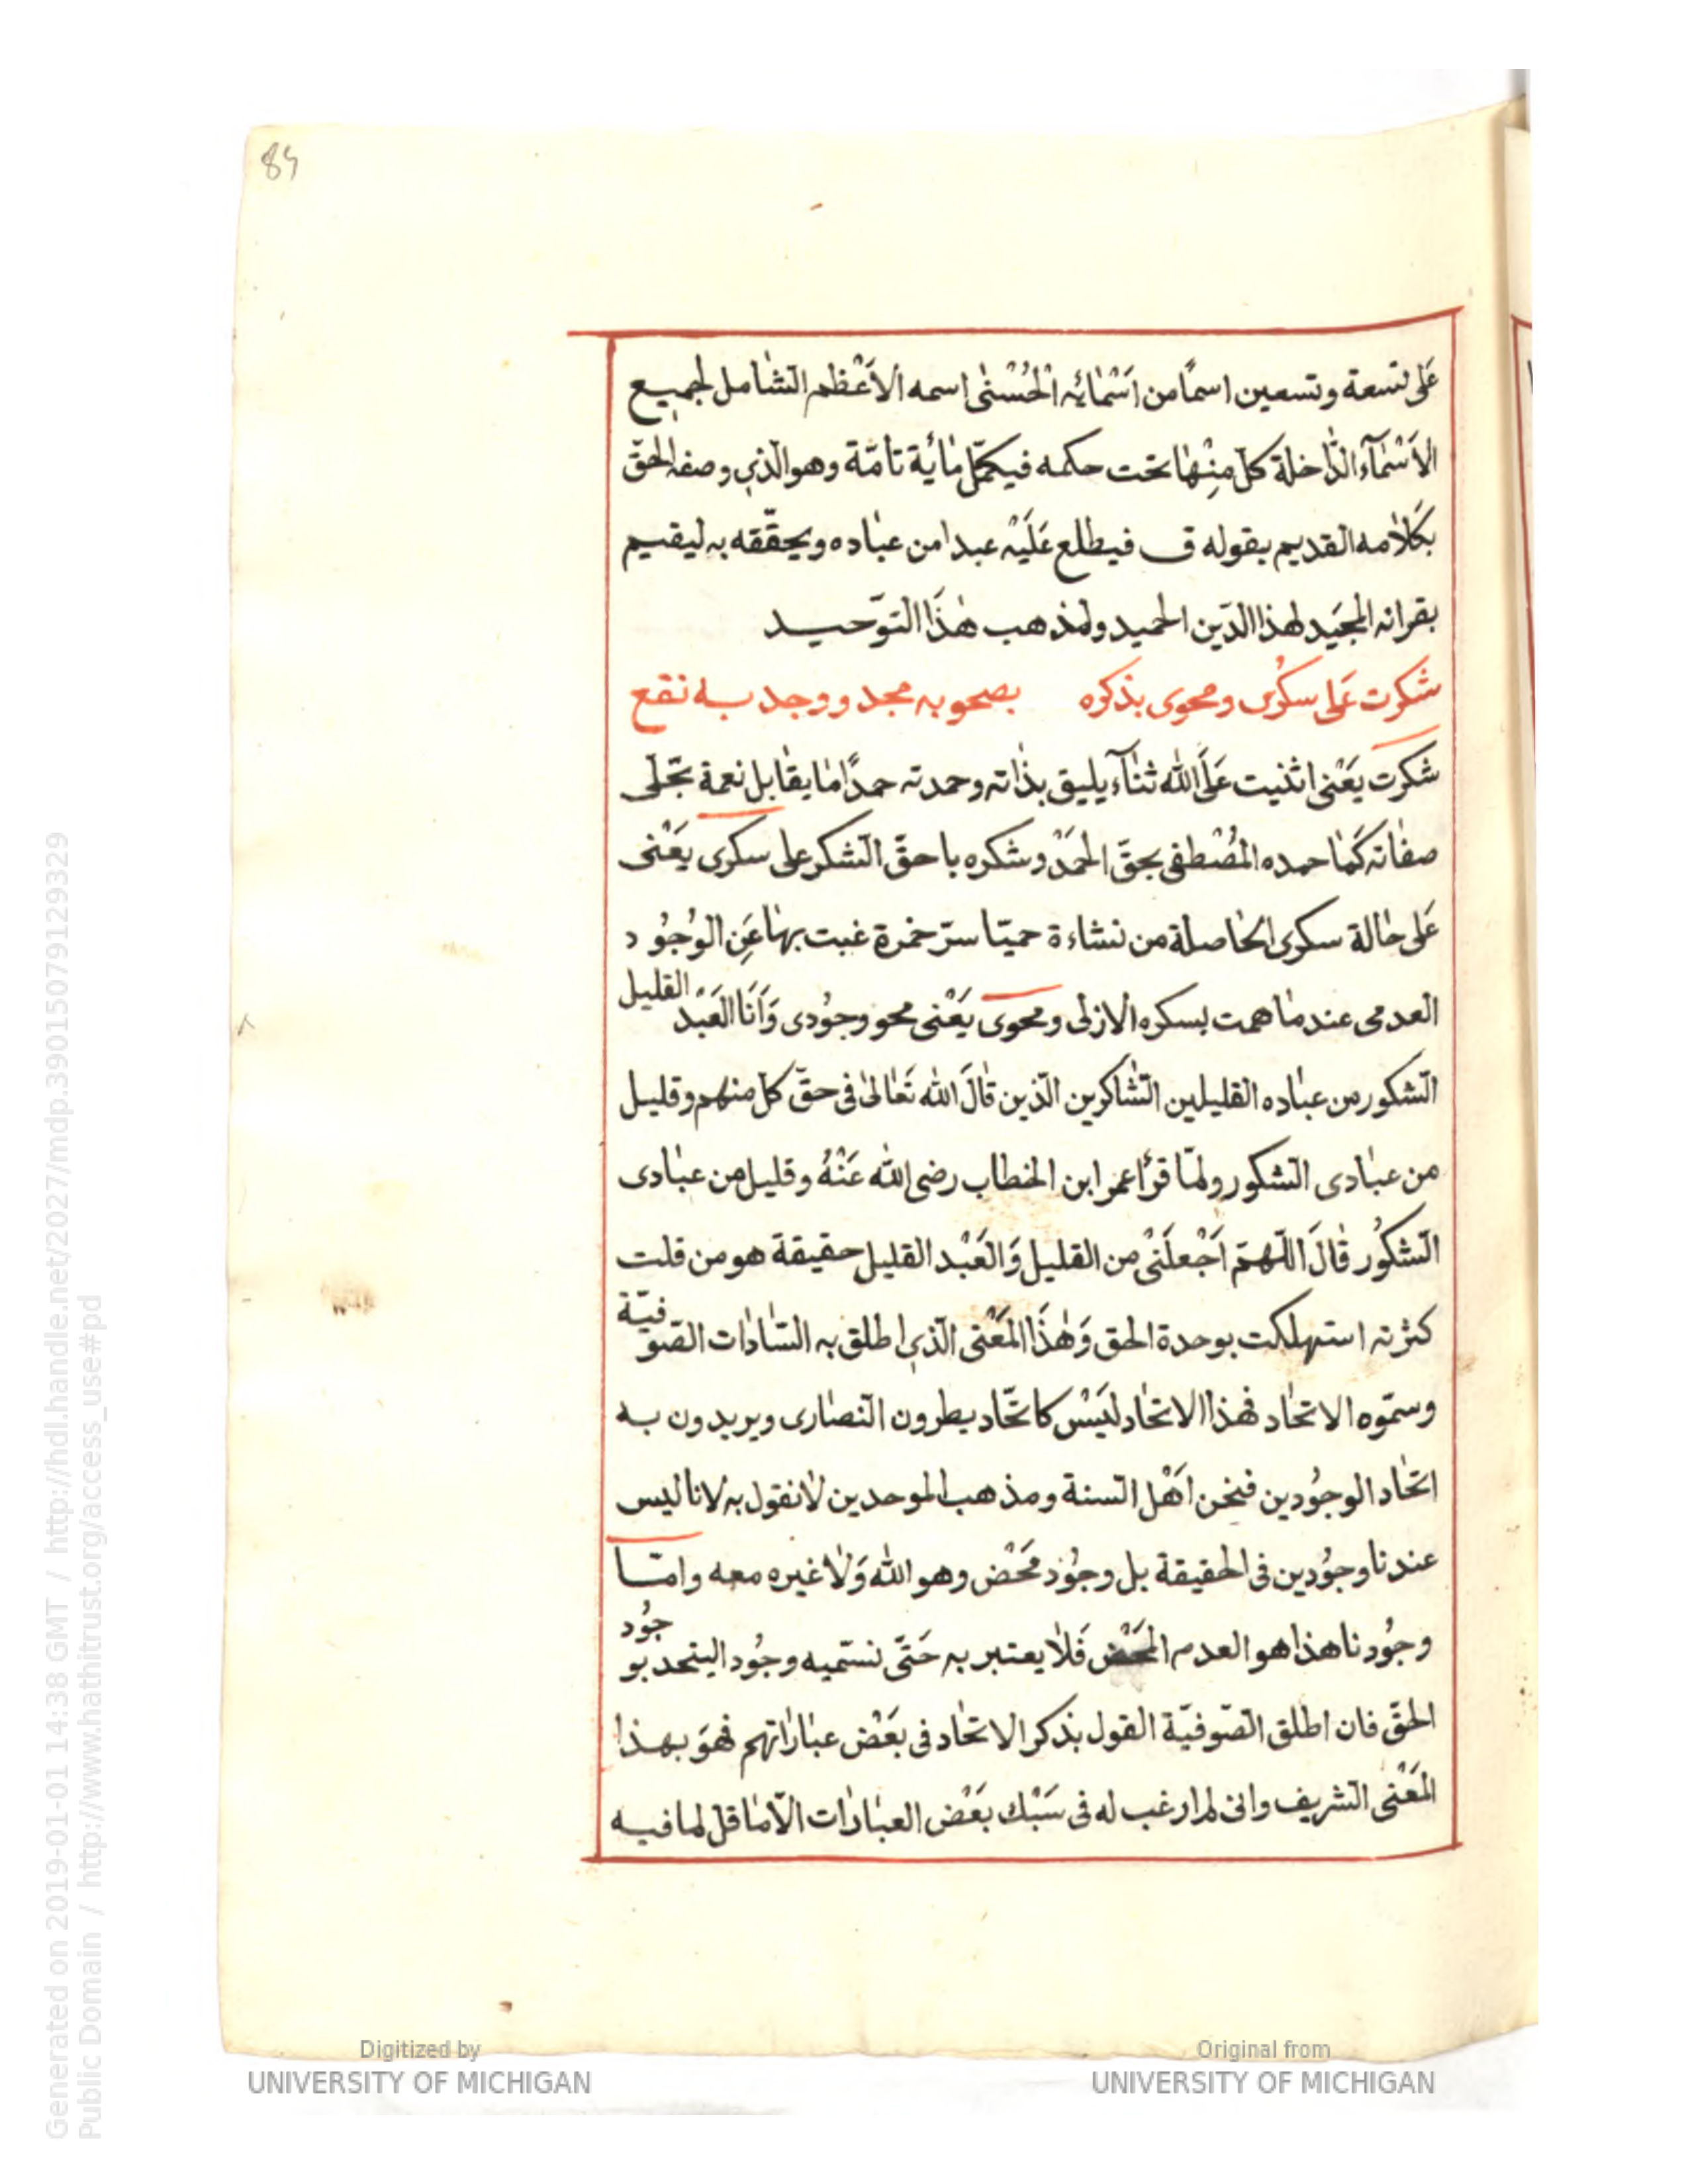 84
عَلى تسعة وتسعين اسمًا من اَسْمٰائِه الْحُسْنٰى اسمه الاَعْظم الشّامل لجميع
الاَسْمٰآء الدّٰاخلة كلّ مِنْهٰا تحت حكمه فيكمّل مٰائة تامّة وهو الّذي وصفه الحقّ
بكَلاٰمه القديم بقوله ق فيطلع عَلَيْه عبدا من عبٰاده ويحقّقه به ليقيم
بقرانه المجَيد لهذا الدّين الحميد ولمذهب هٰذَا التوّحيد
شكرت عَلى سكرُى ومحوى بذكره بصحو به مجد ووجد به نقع
شكرت يَعْنى اثنيت عَلَى اللّٰه ثنٰآء يليق بذٰاته وحمدته حمدًا مٰا يقٰابل نعمة تجّلى
صفٰاته كَمٰا حمده المُصْطفى بحقّ الحمَدْ وشكره باحقّ الشّكر على سكرى يَعْنى
عَلى حٰالة سكرى الحٰاصلة من نشاءة حميّا سرّ خمرة غبت بهٰا عَنِ الوُجُود
العدمى عندمٰا همت بسكره الازلى ومحوى يَعْنى محو وجوُدى وَاَنَا العَبْد القليل
الشّكور من عبٰاده القليلين الشّٰاكرين الّذين قٰالَ اللّٰه تَعٰالىٰ فى حقّ كلّ منهم وقليل
من عبٰادى الشّكور ولمّا قرأ عمر ابن الخطاب رضى اللّٰه عَنْهُ وقليل من عبٰادى
الشّكوُر قٰالَ اللّهمّ اَجْعلَنْى من القليل وَالعَبْد القليل حقيقة هو من قلت
كثرته استهلكت بوحدة الحق وَهٰذَا المَعْنى الّذي اطلق به السّٰادٰات الصّوفيّة
وسمّوه الاتحٰاد فهٰذا الاتحٰاد ليَسْ كاتّحٰاد يطرون النّصٰارى ويريدون به
اتحٰاد الوجوُدين فنحن اَهْل السّنة ومذهب الموحدين لاٰنقول به لانا ليس
عندنا وجوُدين فى الحقيقة بل وجوُد محَضْ وهو اللّٰه وَلاٰ غيره معه وامّا
وجوُدنا هذا هو العدم المحَضْ فَلاٰ يعتبر به حَتّى نسّميه وجوُد اليتحد بوجوُد
الحقّ فان اطلق الصّوفيّة القول بذكر الاتحٰاد فى بَعْض عبٰارٰاتهم فهوَ بهذا
المَعْنى الشّريف وانى لم ارغب له فى سَبْك بَعْض العبٰارٰات الاّ مٰا قل لما فيه
Digitized by
UNIVERSITY OF MICHIGAN
Original from
UNIVERSITY OF MICHIGAN
Generated on 2019-01-01 14:38 GMT / http://hdl.handle.net/2027/mdp.39015079129329
Public Domain / http://www.hathitrust.org/access_use#pd